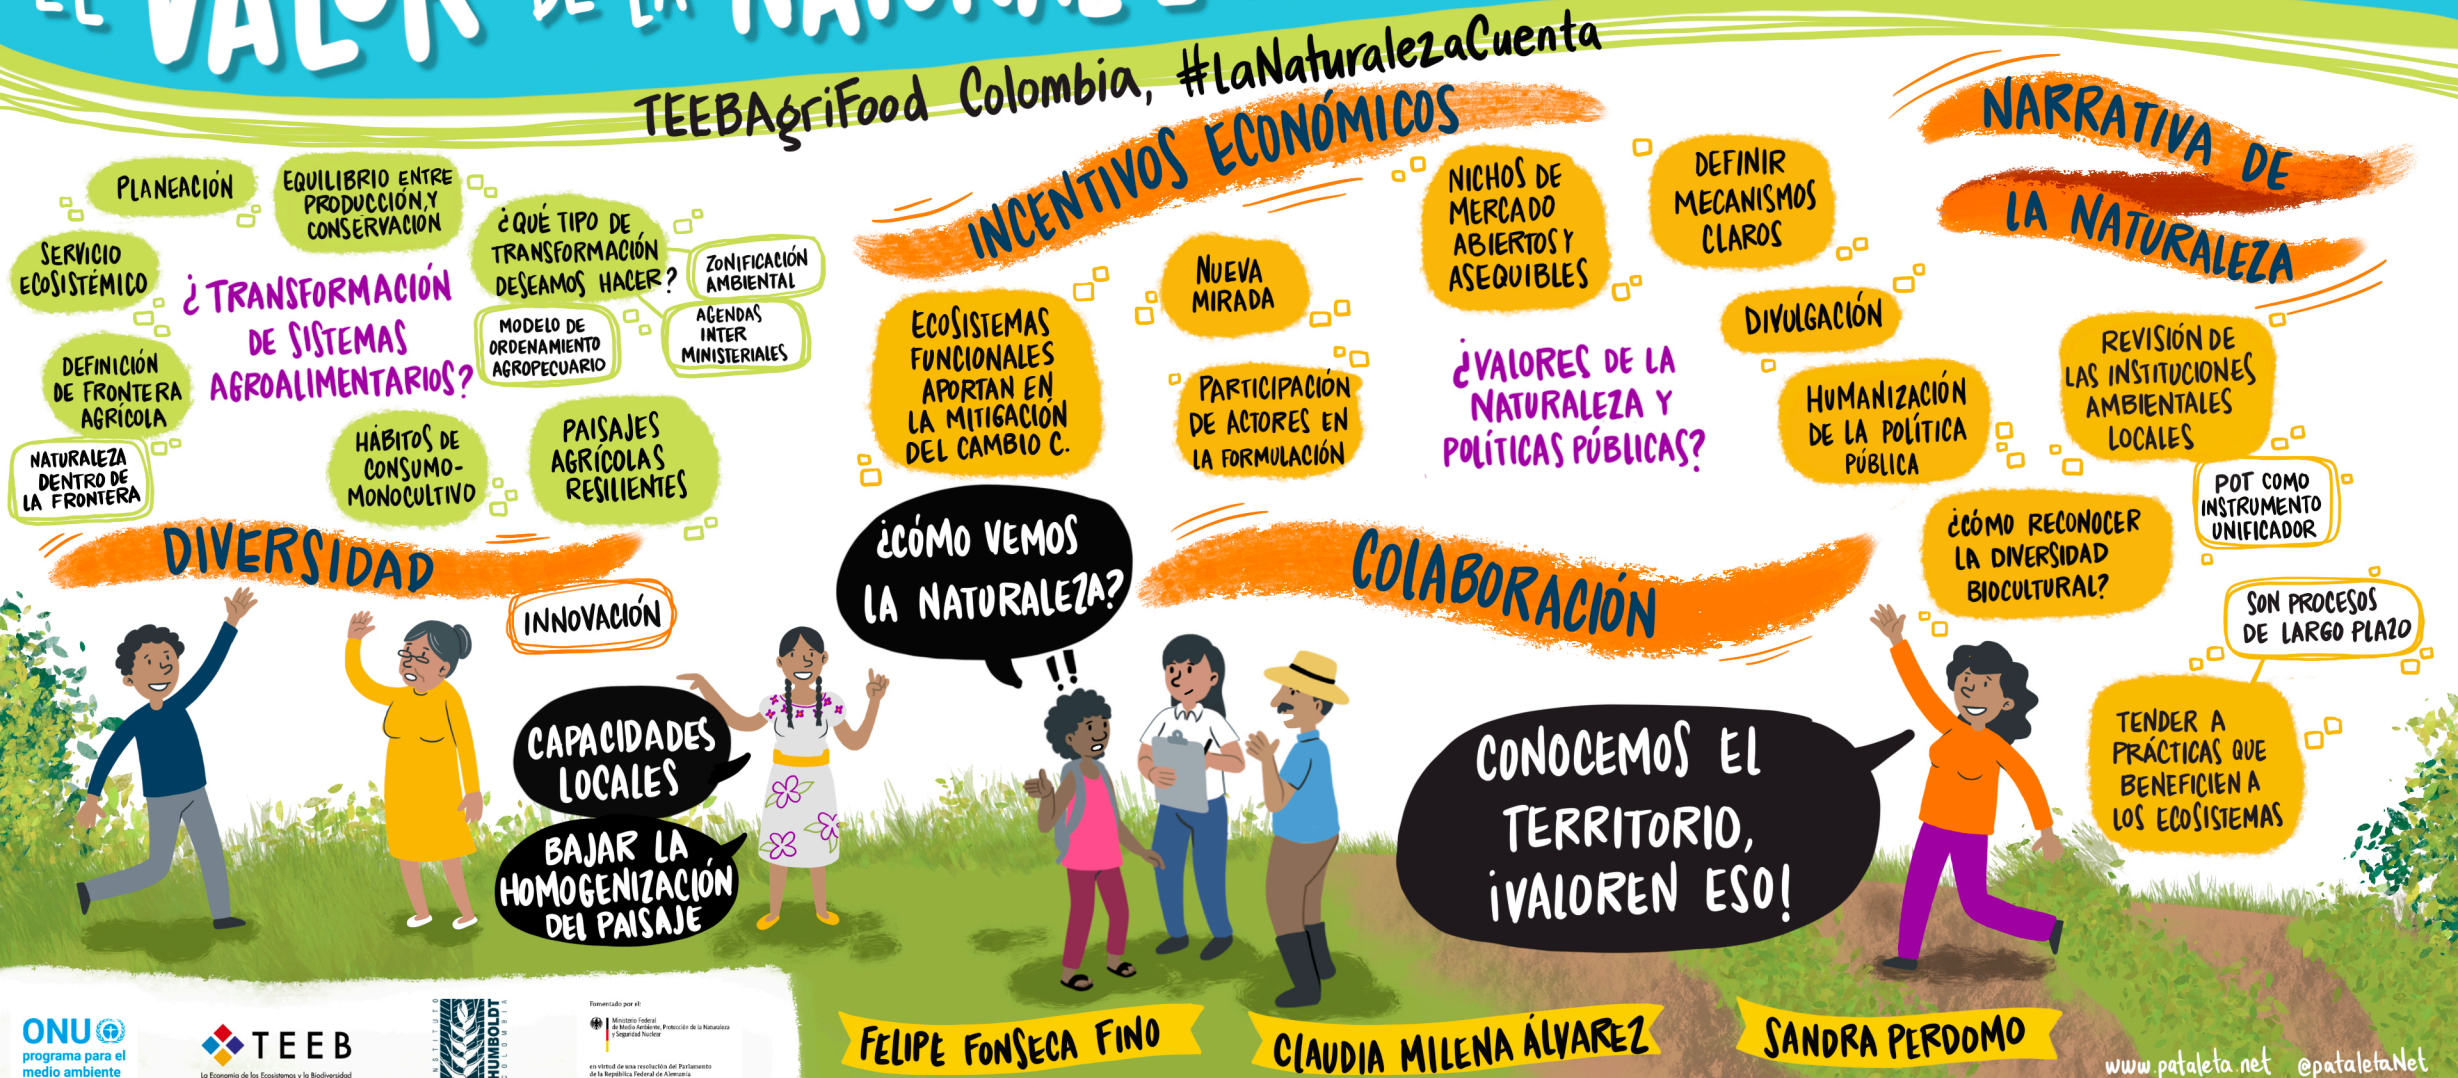 EL VALOR DE LA NATURALEZA
TEEBAgriFood Colombia, #LaNaturalezaCuenta
PLANEACIÓN
EQUILIBRIO ENTRE
PRODUCCIÓN, Y
CONSERVACIÓN
SERVICIO
ECOSISTÉMICO
¿QUÉ TIPO DE
TRANSFORMACIÓN
DESEAMOS HACER?
ZONIFICACIÓN
AMBIENTAL
MODELO DE
ORDENAMIENTO
AGROPECUARIO
AGENDAS
INTER
MINISTERIALES
¿TRANSFORMACIÓN
DE SISTEMAS
AGROALIMENTARIOS?
DEFINICIÓN
DE FRONTERA
AGRÍCOLA
NATURALEZA
DENTRO DE
LA FRONTERA
HÁBITOS DE
CONSUMO-
MONOCULTIVO
PAISAJES
AGRÍCOLAS
RESILIENTES
DIVERSIDAD
INNOVACIÓN
CAPACIDADES
LOCALES
BAJAR LA
HOMOGENIZACIÓN
DEL PAISAJE
INCENTIVOS ECONÓMICOS
ECOSISTEMAS
FUNCIONALES
APORTAN EN
LA MITIGACIÓN
DEL CAMBIO C.
NUEVA
MIRADA
PARTICIPACIÓN
DE ACTORES EN
LA FORMULACIÓN
NICHOS DE
MERCADO
ABIERTOS Y
ASEQUIBLES
DEFINIR
MECANISMOS
CLAROS
DIVULGACIÓN
¿VALORES DE LA
NATURALEZA Y
POLÍTICAS PÚBLICAS?
HUMANIZACIÓN
DE LA POLÍTICA
PÚBLICA
NARRATIVA DE
LA NATURALEZA
REVISIÓN DE
LAS INSTITUCIONES
AMBIENTALES
LOCALES
POT COMO
INSTRUMENTO
UNIFICADOR
¿CÓMO RECONOCER
LA DIVERSIDAD
BIOCULTURAL?
SON PROCESOS
DE LARGO PLAZO
TENDER A
PRÁCTICAS QUE
BENEFICIEN A
LOS ECOSISTEMAS
¿CÓMO VEMOS
LA NATURALEZA?
!!
COLABORACIÓN
CONOCEMOS EL
TERRITORIO,
¡VALOREN ESO!
FELIPE FONSECA FINO
CLAUDIA MILENA ÁLVAREZ
SANDRA PERDOMO
ONU
programa para el
medio ambiente
TEEB
La Economía de los Ecosistemas y la Biodiversidad
INSTITUTO
HUMBOLDT
COLOMBIA
Fomentado por el:
Ministerio Federal
de Medio Ambiente, Protección de la Naturaleza
y Seguridad Nuclear
en virtud de una resolución del Parlamento
de la República Federal de Alemania
www.pataleta.net @pataletaNet